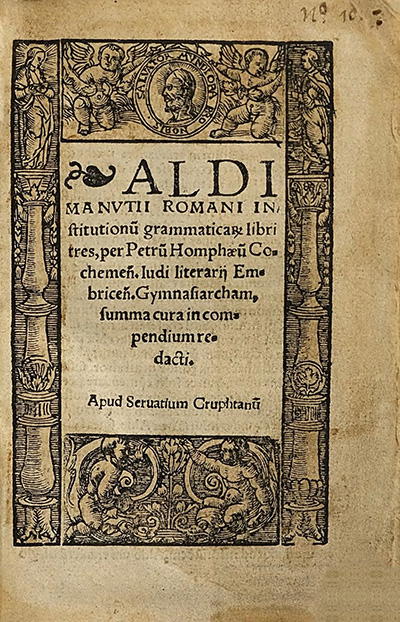 Nº 10.
SALVATOR MVNDI ORA PRO NOBIS
ALDI
MANVTII ROMANI IN-
stitutionũ grammaticaꝝ libri
tres, per Petrũ Homphæũ Co-
chemeñ. ludi literarij Em-
briceñ. Gymnasiarcham,
summa cura in com-
pendium re-
dacti.
Apud Seruatium Cruphtanũ